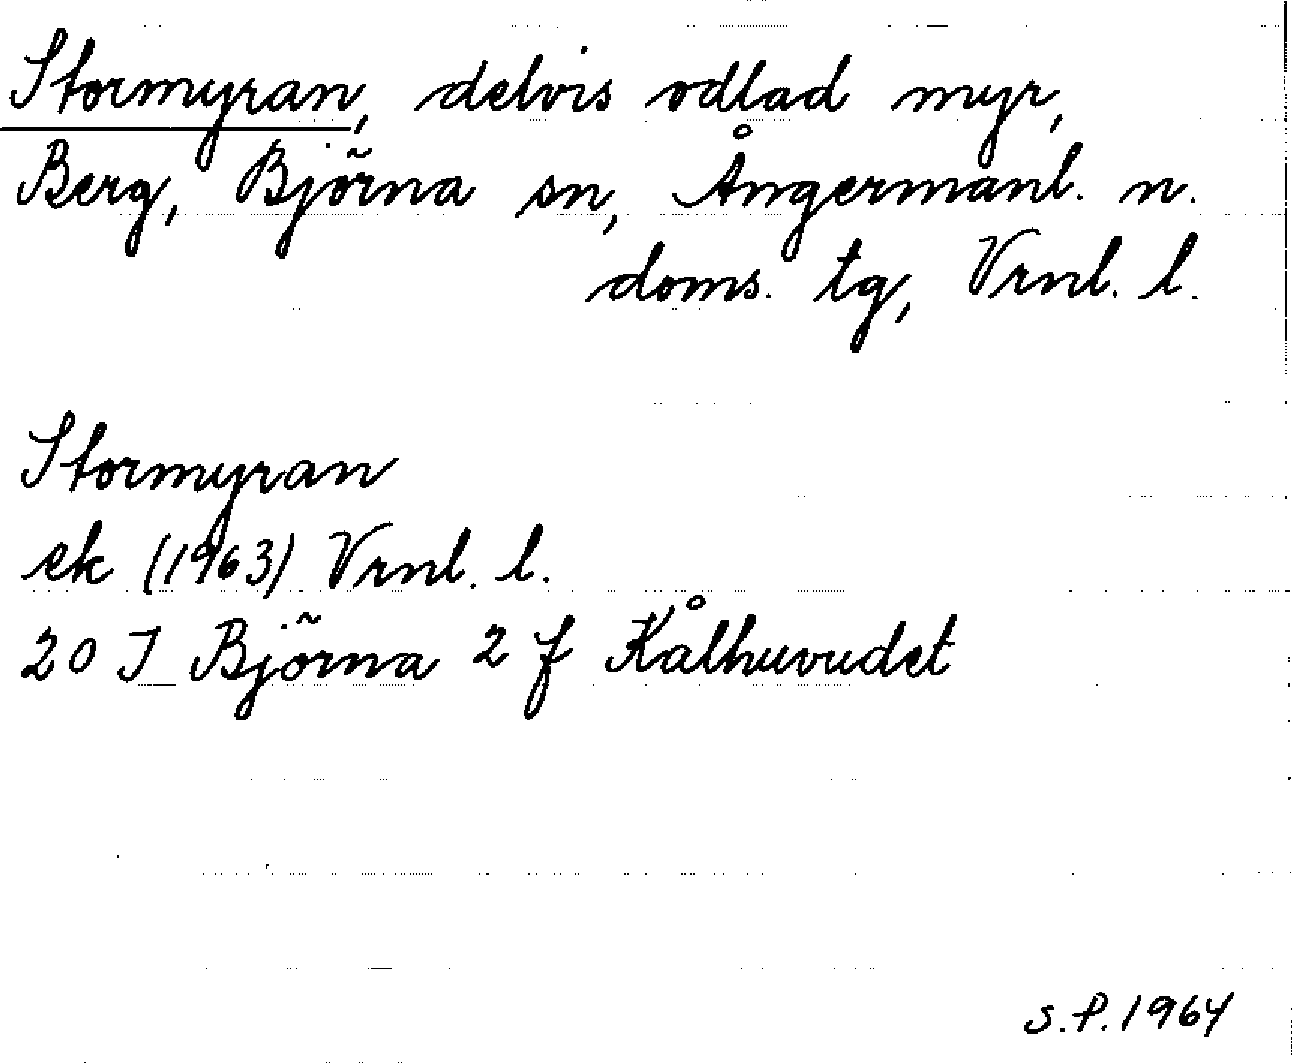 Stormyran, delvis odlad myr,
Berg, Björna sn, Ångermanl. n.
doms. tg, Vrnl. l.
Stormyran
ek (1963) Vrnl. l.
20 I Björna 2 f Kålhuvudet
S.P. 1964